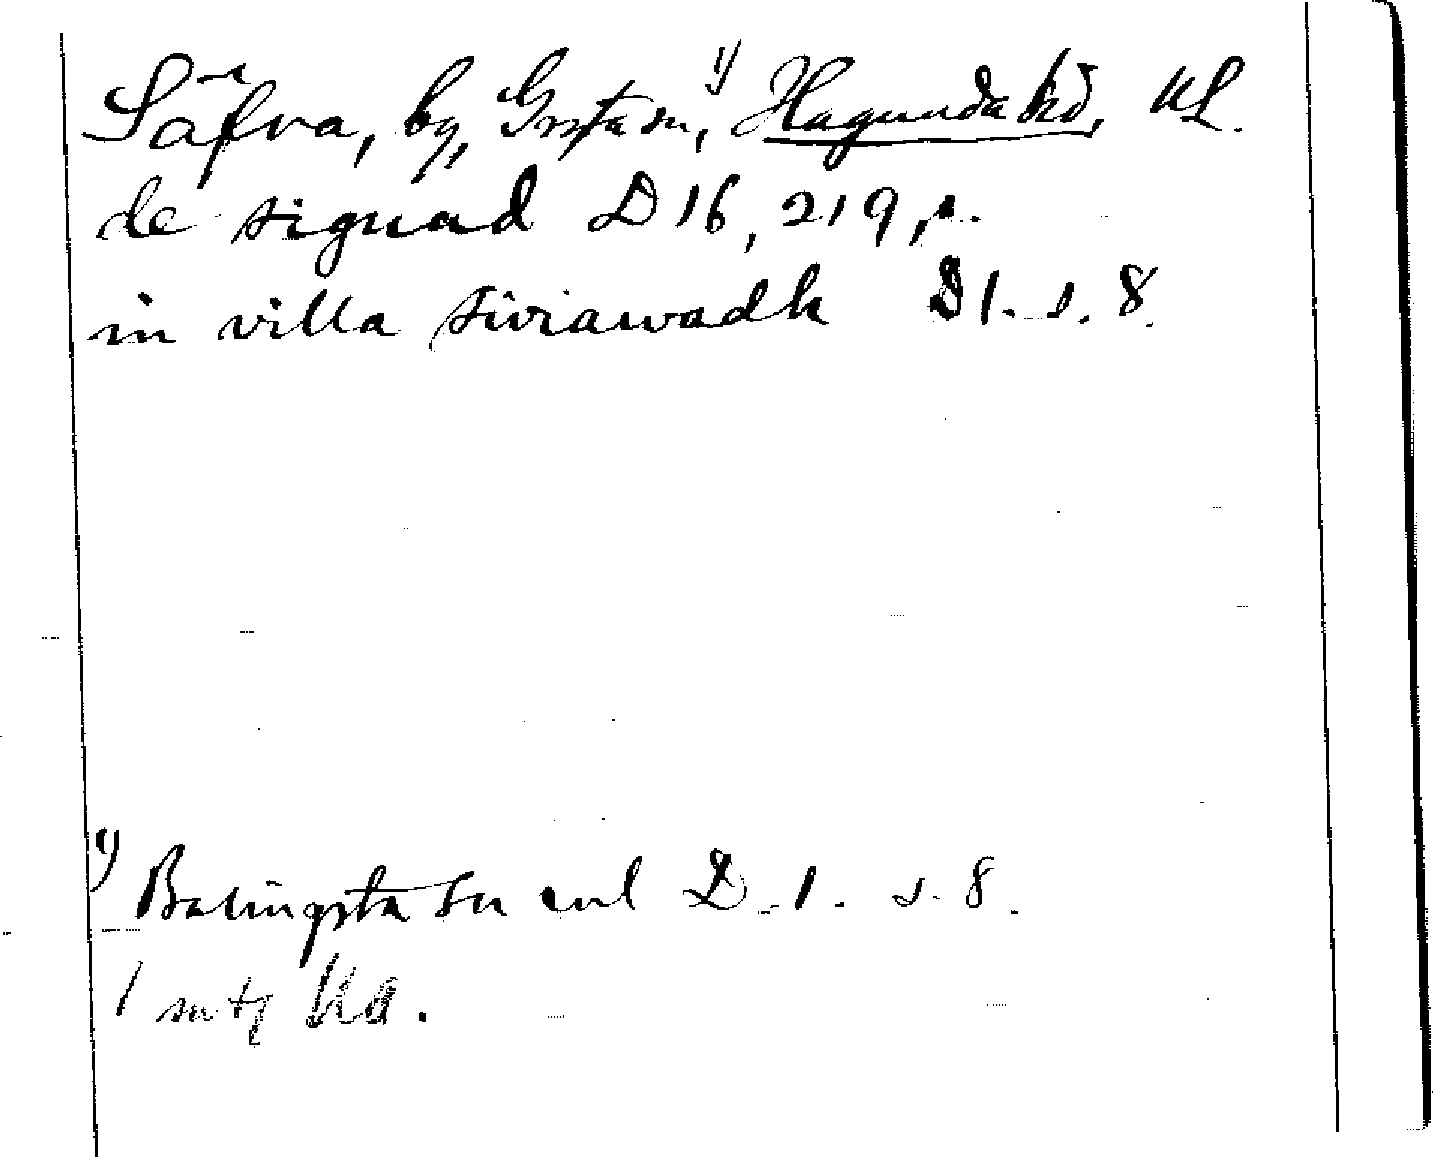 Säfva, by, Grysta sn,¹⁾ Hagunda hd, UL.
de signad D 16, 219, r.
in villa siviawadh D 1. s. 8.
¹⁾ Balingsta sn enl D. 1. s. 8.
1 mtl Ka.